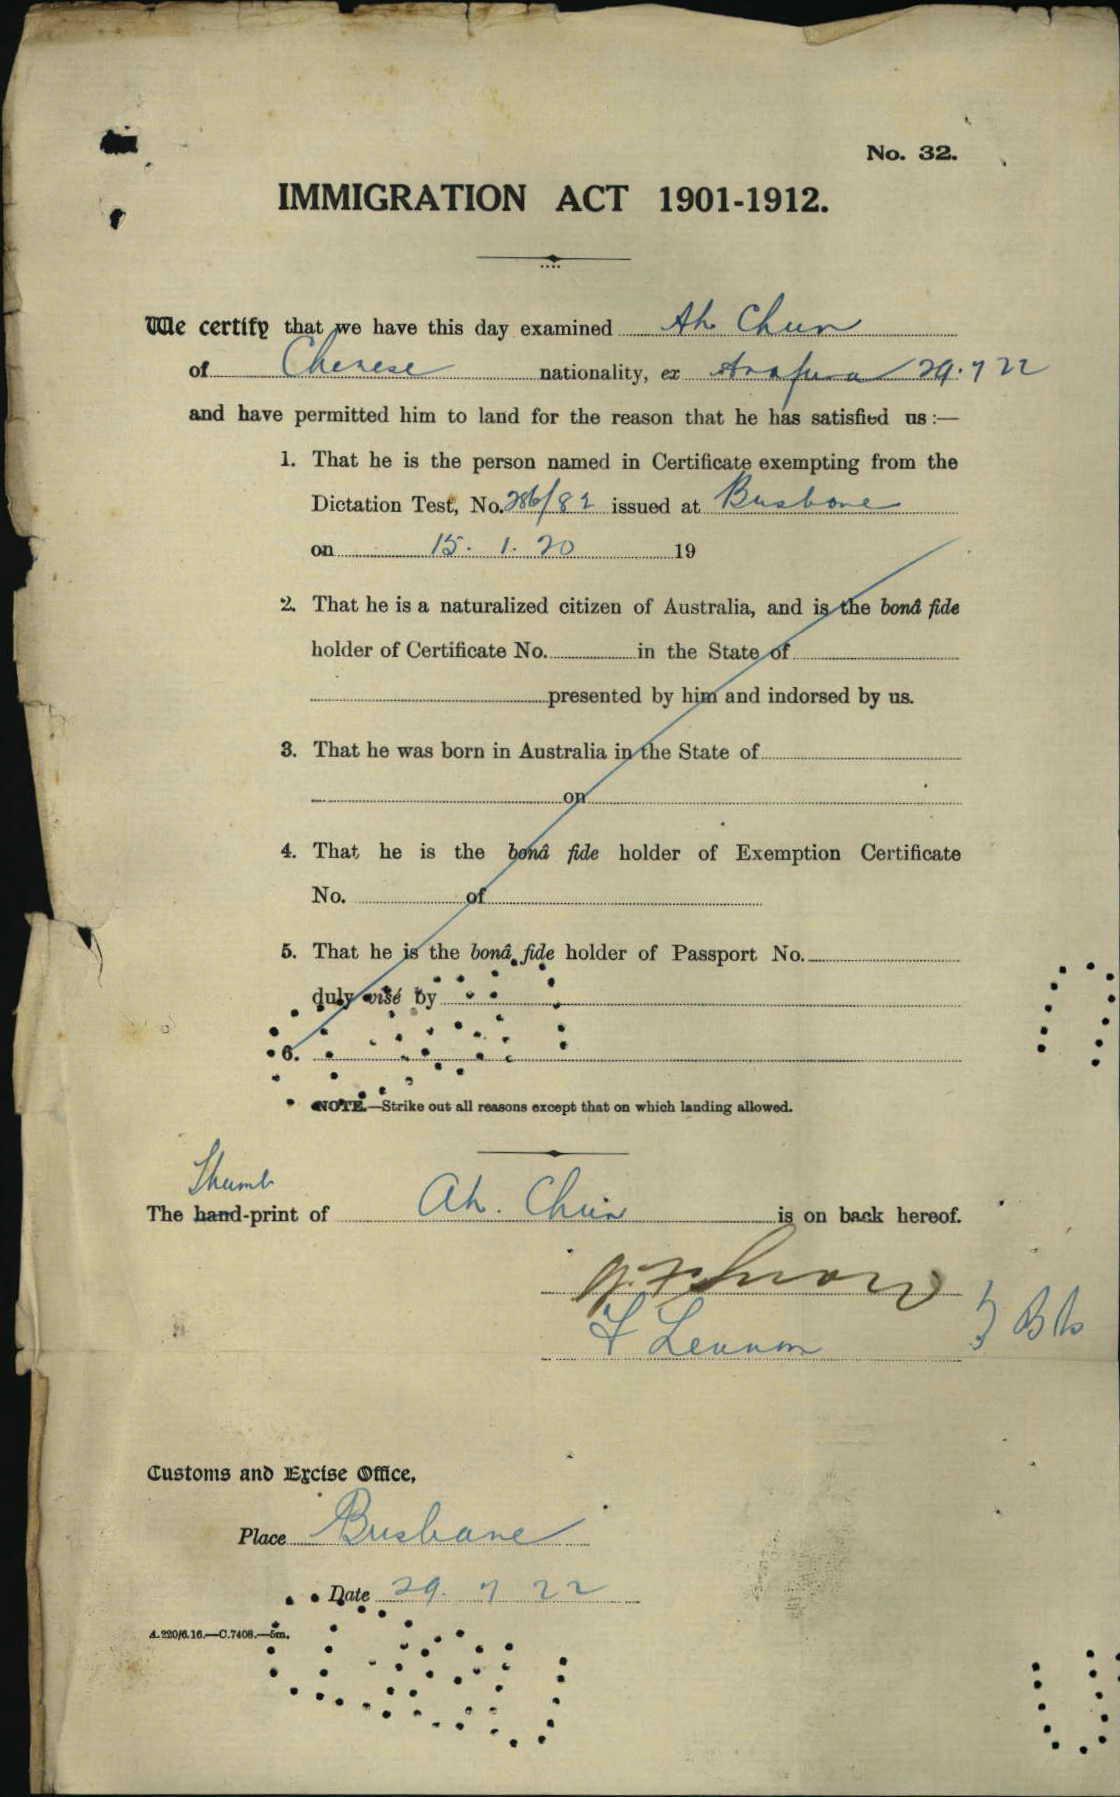 No. 32.
IMMIGRATION ACT 1901-1912.
We certify that we have this day examined Ah Chun
of Chinese nationality, ex Arafura 29.7 22
and have permitted him to land for the reason that he has satisfied us:—
1. That he is the person named in Certificate exempting from the
Dictation Test, No. 286/82 issued at Brisbane
on 15. 1. 20 19
2. That he is a naturalized citizen of Australia, and is the bonâ fide
holder of Certificate No. in the State of
presented by him and indorsed by us.
3. That he was born in Australia in the State of
on
4. That he is the bonâ fide holder of Exemption Certificate
No. of
5. That he is the bonâ fide holder of Passport No.
duly visé by
6.
NOTE.—Strike out all reasons except that on which landing allowed.
Thumb
The hand-print of Ah. Chun is on back hereof.
Snow
F Lennon
Customs and Excise Office,
Place Brisbane
Date 29. 7 22
A.220/6.16.—C.7408.—5m.